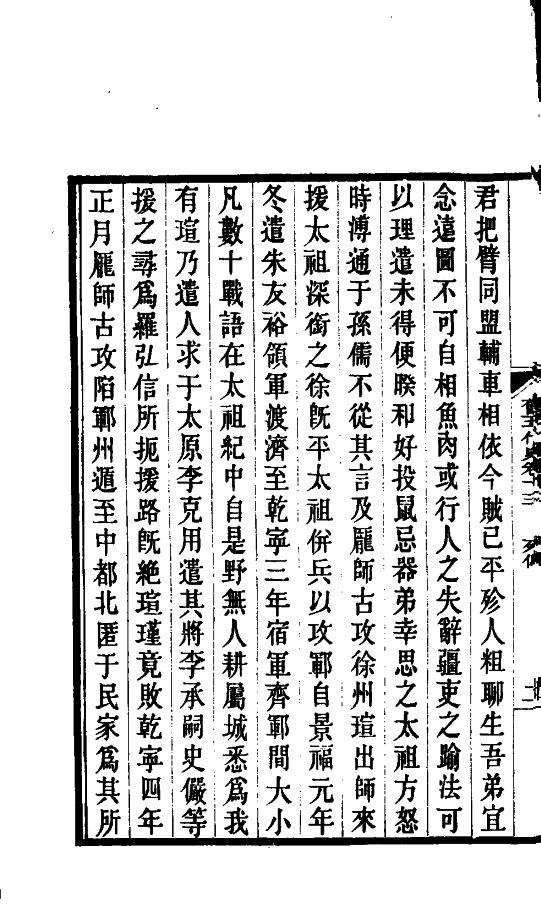 君把臂同盟輔車相依今賊已平殄人粗聊生吾弟宜
念遠圖不可自相魚肉或行人之失辭疆吏之踰法可
以理遣未得便睽和好投鼠忌器弟幸思之太祖方怒
時溥通于孫儒不從其言及龐師古攻徐州瑄出師來
援太祖深銜之徐旣平太祖併兵以攻鄆自景福元年
冬遣朱友裕領軍渡濟至乾寧三年宿軍齊鄆間大小
凡數十戰語在太祖紀中自是野無人耕屬城悉爲我
有瑄乃遣人求于太原李克用遣其將李承嗣史儼等
援之尋爲羅弘信所扼援路旣絶瑄瑾竟敗乾寧四年
正月龐師古攻陷鄆州遁至中都北匿于民家爲其所